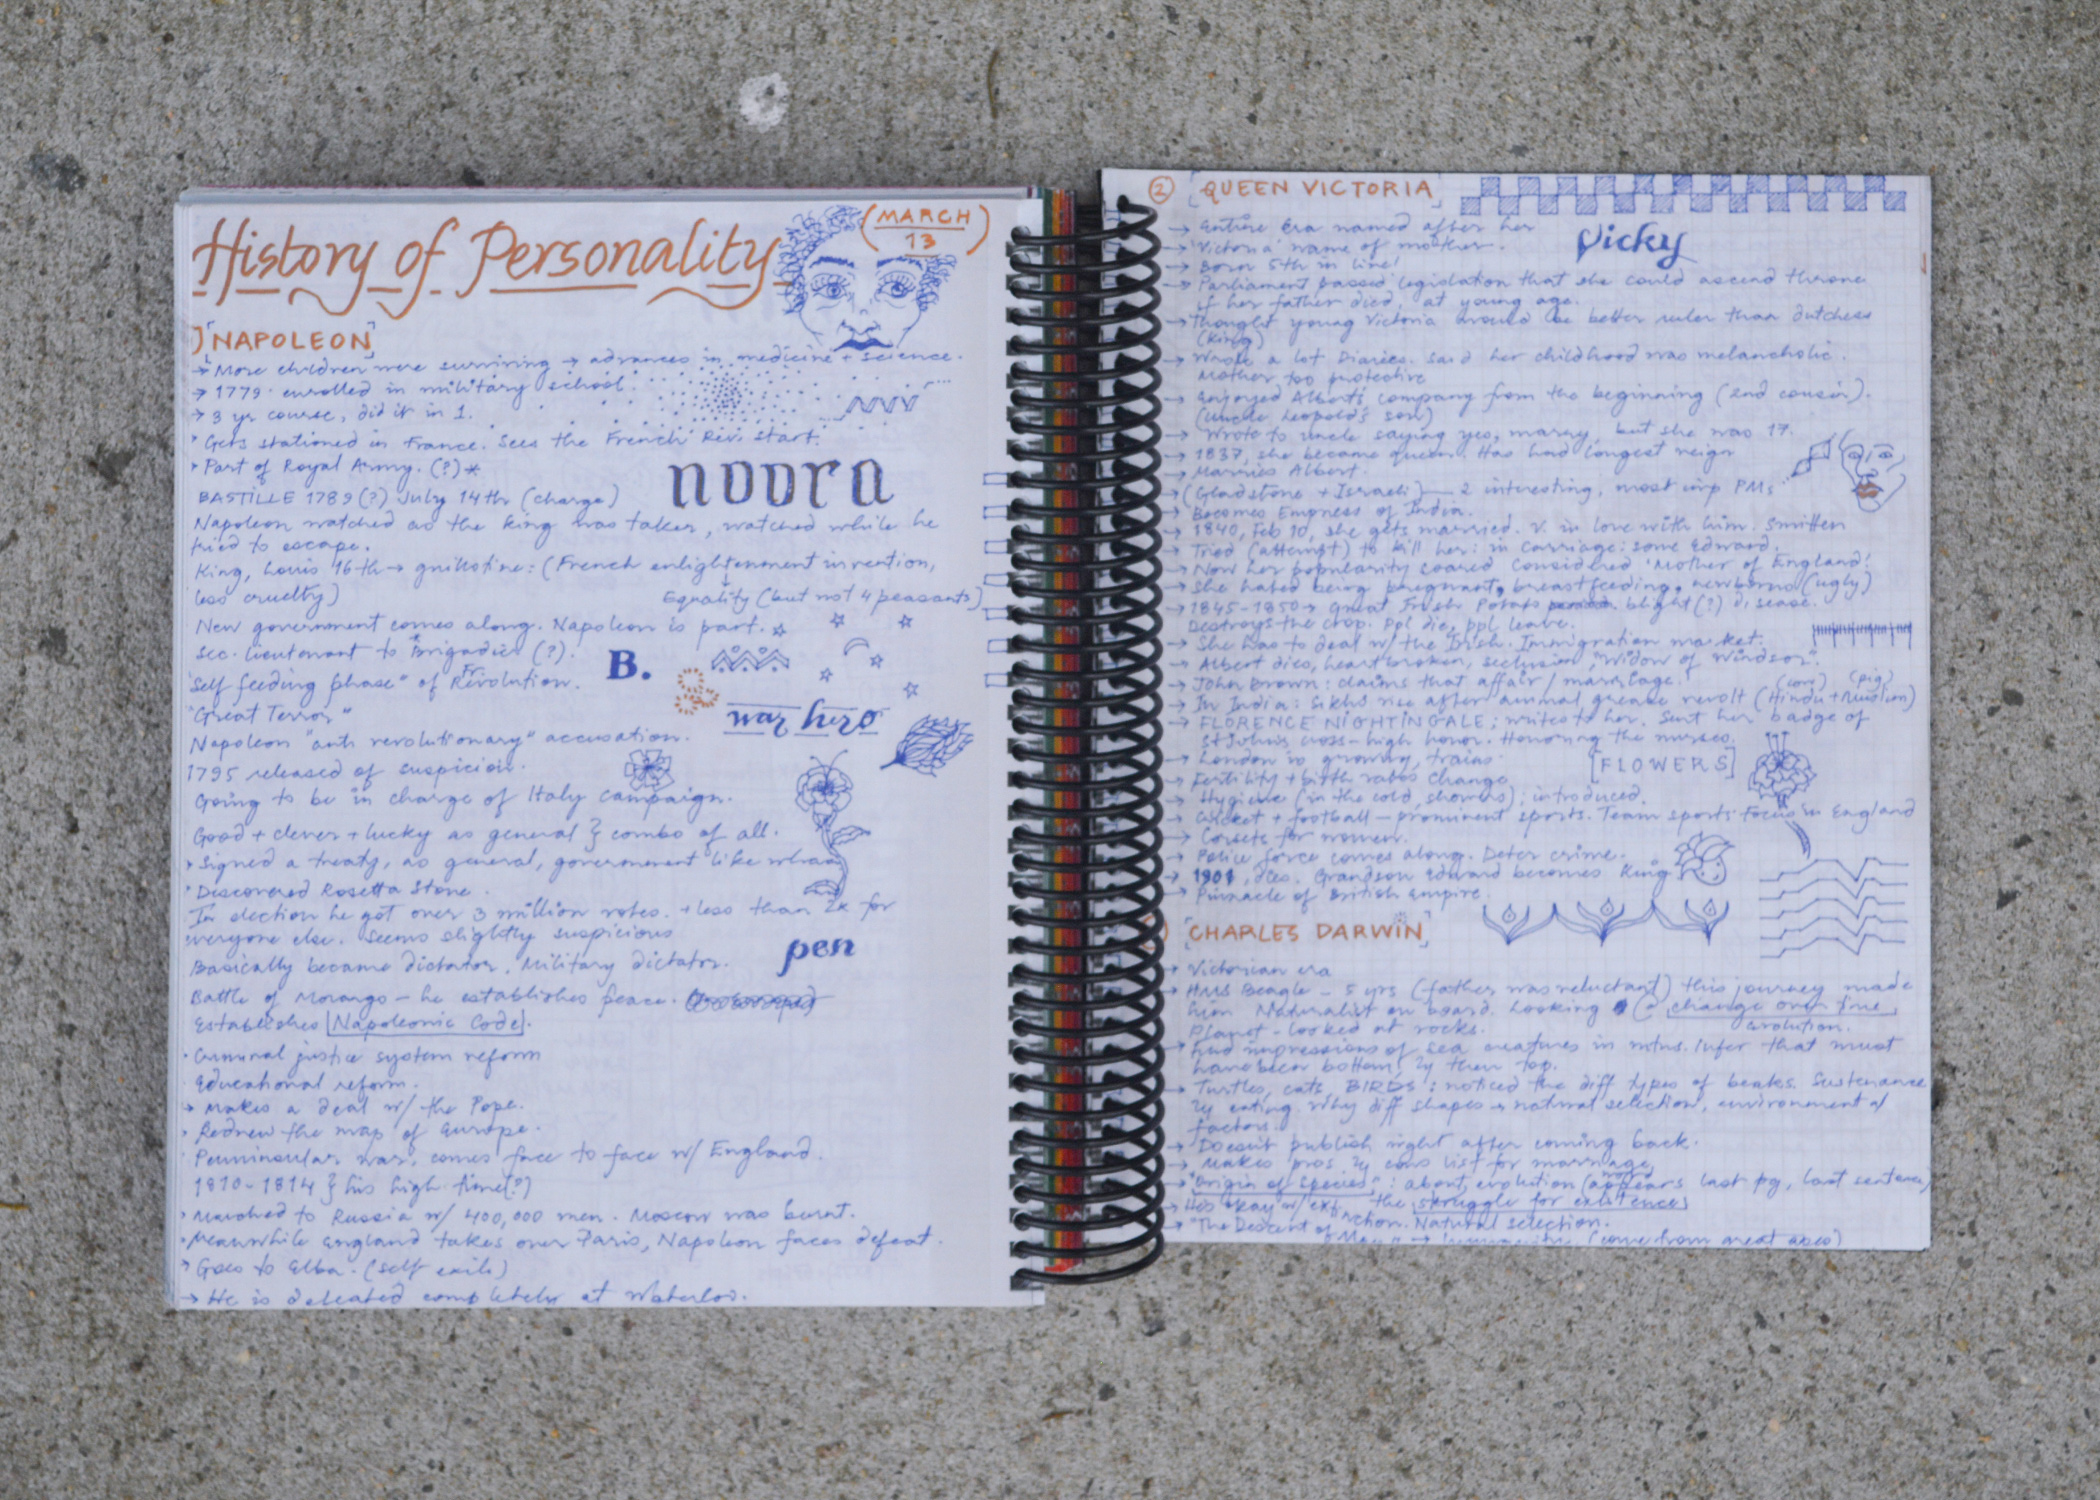 History of Personality
(MARCH 13)
) [NAPOLEON]
→ More children were surviving → advances in medicine + science.
→ 1779 enrolled in military school.
→ 3 yr course, did it in 1.
Gets stationed in France. Sees the French Rev. start.
Part of Royal Army. (?)*
noora
BASTILLE 1789(?) July 14th (charge)
Napoleon watched as the king was taken, watched while he
tried to escape.
King, Louis 16th → guillotine: (French enlightenment invention,
less cruelty)
Equality (but not 4 peasants)
New government comes along. Napoleon is part.
Sec. lieutenant to Brigadier (?).
B.
"Self feeding phase" of Fr Revolution.
"Great Terror"
war hero
Napoleon "anti revolutionary" accusation.
1795 released of suspicion.
Going to be in charge of Italy campaign.
Good + clever + lucky as general } combo of all.
Signed a treaty, as general, government like
Discovered Rosetta Stone.
In election he got over 3 million votes. + less than 2k for
everyone else. Seems slightly suspicious
pen
Basically became dictator. Military dictator.
Battle of Morango - he establishes peace.
Establishes [Napoleonic Code].
Criminal justice system reform
Educational reform.
→ Makes a deal w/ the Pope.
Redrew the map of Europe.
Penninsular war, comes face to face w/ England.
1810-1814 } his high time(?)
Marched to Russia w/ 400,000 men. Moscow was burnt.
Meanwhile England takes over Paris, Napoleon faces defeat.
→ Goes to Elba. (self exile)
→ He is defeated completely at Waterloo.
② [QUEEN VICTORIA]
→ Entire Era named after her
Vicky
→ 'Victoria' name of mother.
→ Born 5th in line!
→ Parliament passed legislation that she could ascend throne
if her father died, at young age.
→ Thought young Victoria would be better ruler than dutchess
(King)
→ Wrote a lot Diaries. Said her childhood was melancholic.
Mother too protective
→ Enjoyed Albert's company from the beginning (2nd cousin).
(Uncle Leopold's son)
→ Wrote to uncle saying yes, marry, but she was 17.
→ 1837, she became queen. Has had longest reign
→ Marries Albert.
→ (Gladstone + Israeli) — 2 interesting, most imp PMs
→ Becomes Empress of India.
→ 1840, Feb 10, she gets married. V. in love with him. Smitten
→ Tried (attempt) to kill her: in carriage: some Edward.
→ Now her popularity soared considered 'Mother of England'!
→ She hated being pregnant, breastfeeding, newborns (ugly)
→ 1845-1850 → Great Irish Potato blight(?) disease.
Destroys the crop. Ppl die, ppl leave.
→ She has to deal w/ the Irish. Immigration market.
→ Albert dies, heartbroken, seclusion, "Widow of Windsor".
→ John Brown: claims that affair/marriage!
(cow) (pig)
→ In India: Sikhs rise after animal grease revolt (Hindu + Muslim)
→ FLORENCE NIGHTINGALE; writes to her. Sent her badge of
St John's cross - high honor. Honoring the nurses.
→ London is growing, trains.
[FLOWERS]
→ Fertility + birth rates change
→ Hygiene (in the cold, showers); introduced.
→ Cricket + football - prominent sports. Team sports focus in England
→ Corsets for women.
→ Police force comes along. Deter crime.
→ 1901, dies. Grandson Edward becomes King
→ Pinnacle of British Empire.
) [CHARLES DARWIN]
→ Victorian era
→ HMS Beagle - 5 yrs (father was reluctant) this journey made
him. Naturalist on board. Looking @ change over time
evolution.
Planet - looked at rocks.
→ Find impressions of sea creatures in mtns. Infer that must
have been bottom, & then top.
→ Turtles, cats, BIRDS: noticed the diff types of beaks. Sustenance
& eating. Why diff shapes → natural selection, environmental
factors.
→ Doesn't publish right after coming back.
→ Makes pros & cons list for marriage
→ "Origin of Species": about evolution (appears last pg, last sentence)
the struggle for existence
→ "The Descent of Man" → (come from great apes)
Natural selection.